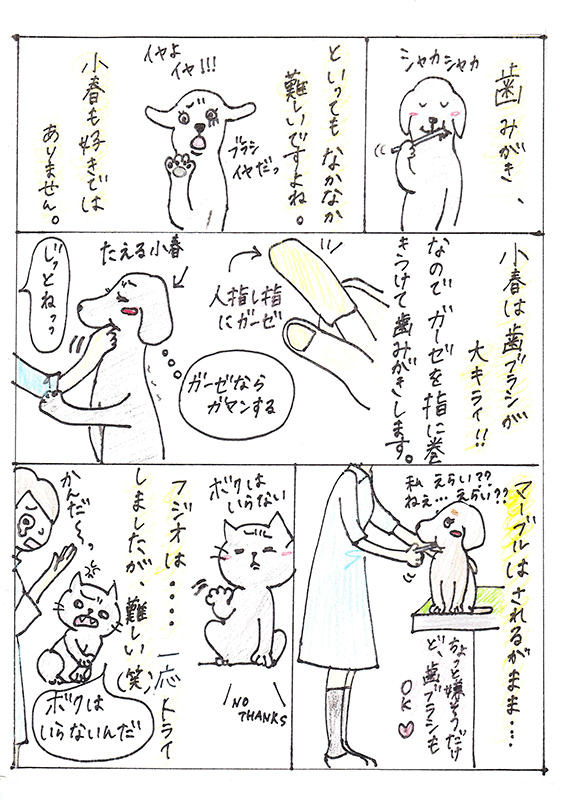 歯みがき、
シャカシャカ
といっても なかなか
難しいですよね。
イヤよ
イヤ!!!
ブラシ
イヤだっ
小春も好きでは
ありません。
小春は歯ブラシが
大キライ!!
なので ガーゼを指に巻
きつけて歯みがきします。
人指し指
にガーゼ
たえる小春
じっとねっっ
ガーゼなら
ガマンする
マーブルはされるがまま…
私 えらい??
ねぇ… えらい??
ちょっと嫌そうだけ
ど、歯ブラシも
OK
ボクは
いらない
NO
THANKS
フジオは・・・・一応トライ
しましたが、難しい(笑)
かんだ〜っ
ボクは
いらないんだ